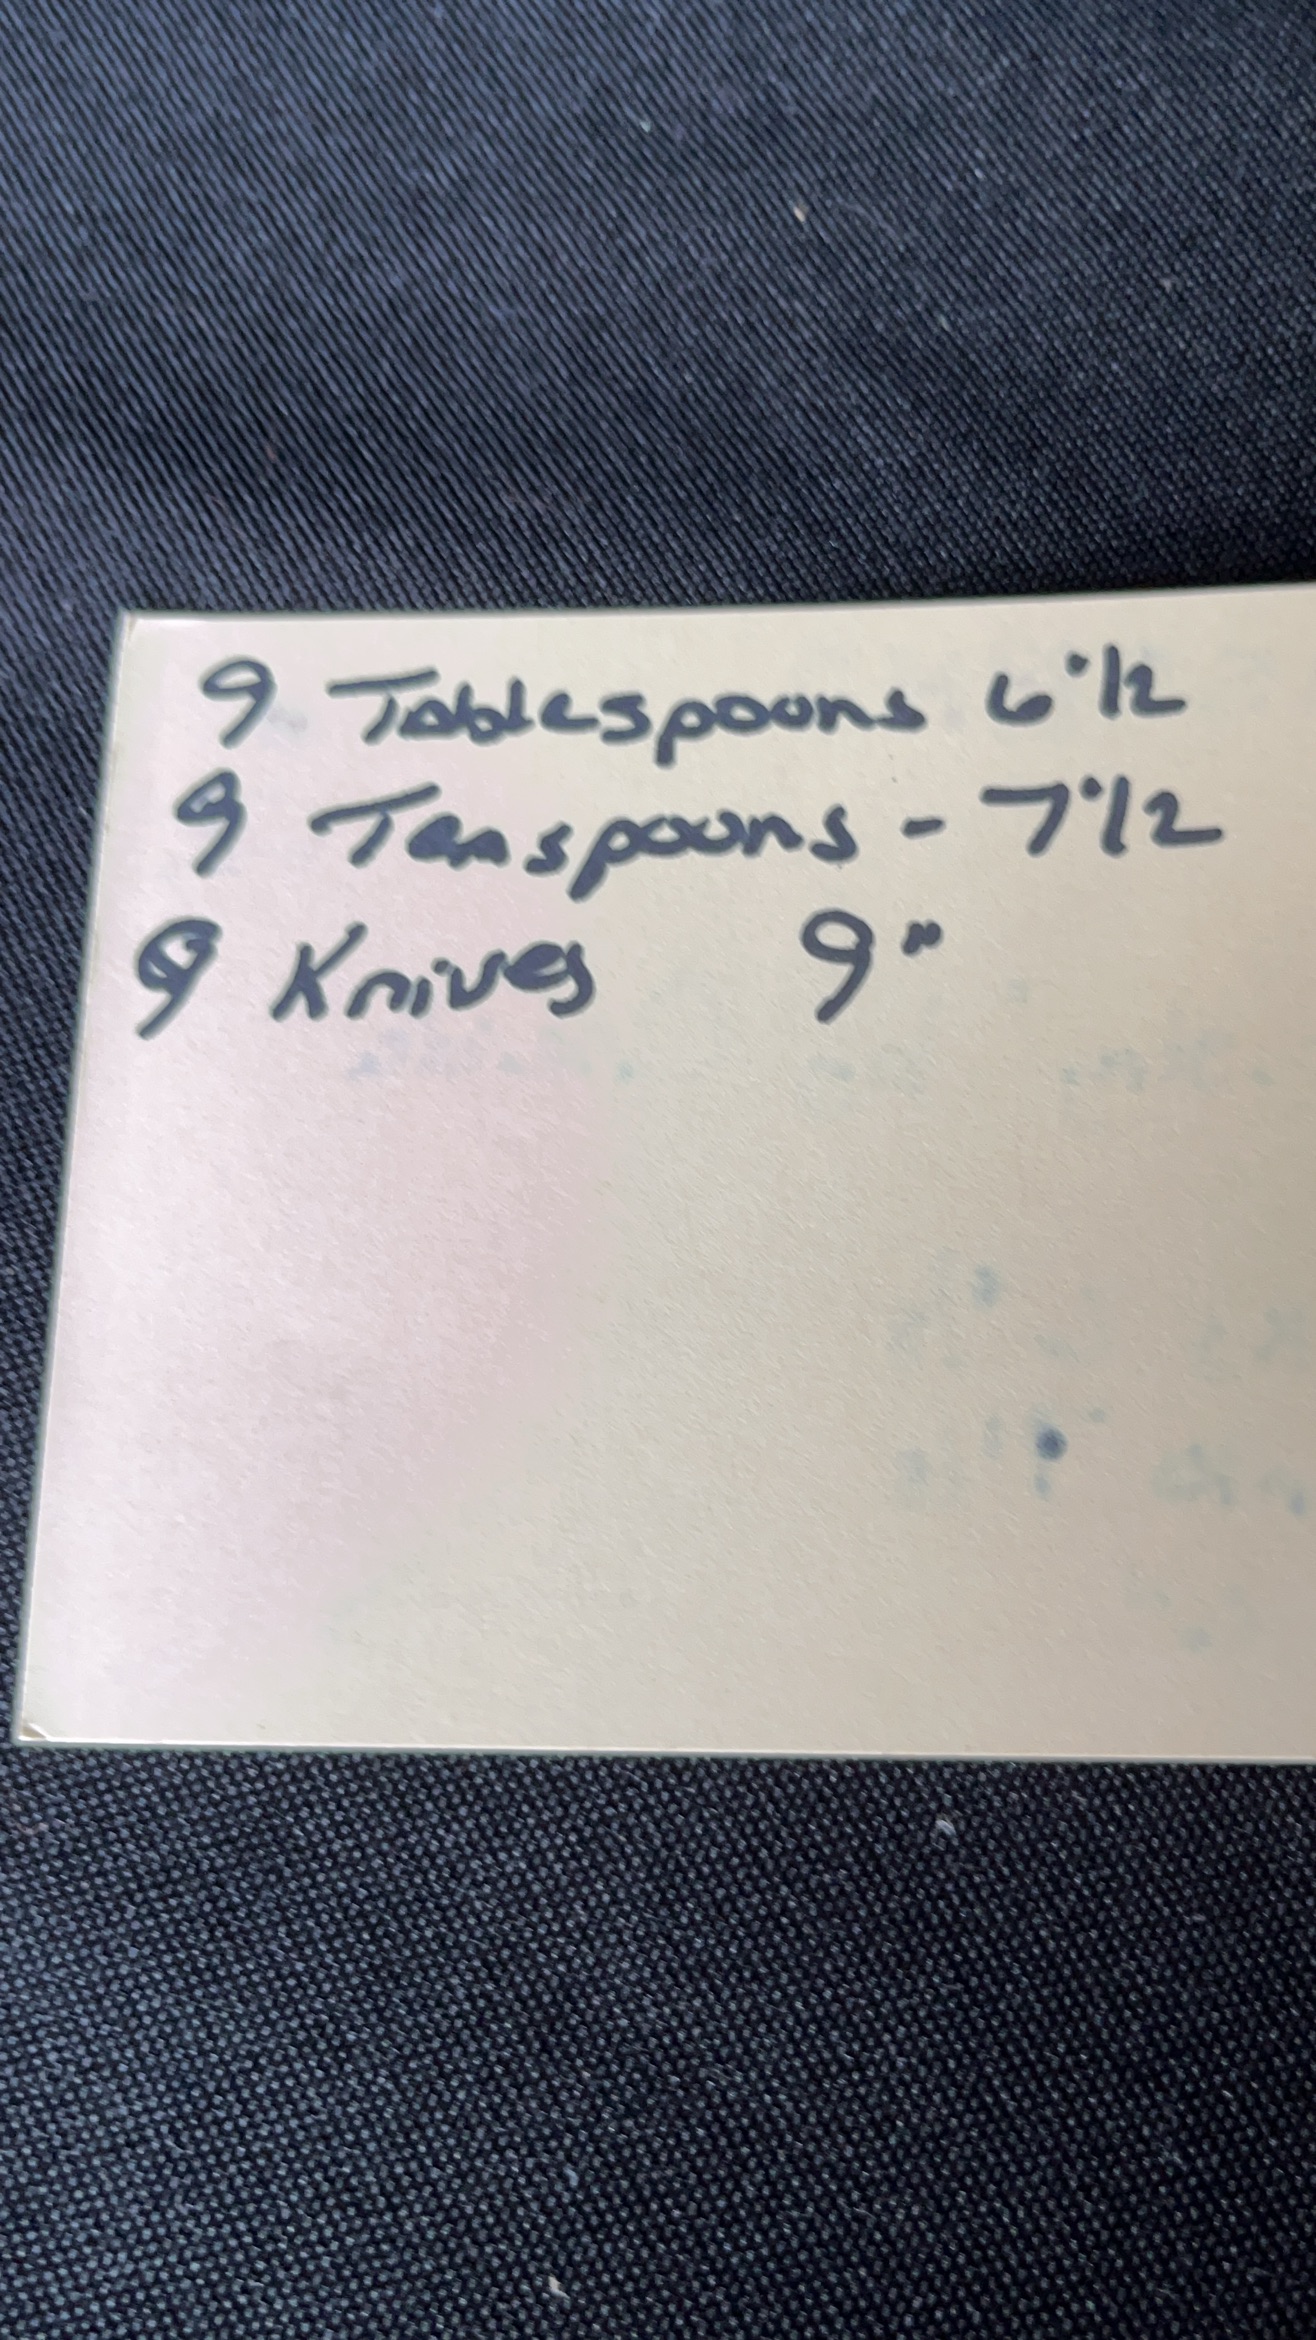 9 Tablespoons 6 1/2
9 Teaspoons - 7 1/2
9 Knives 9"